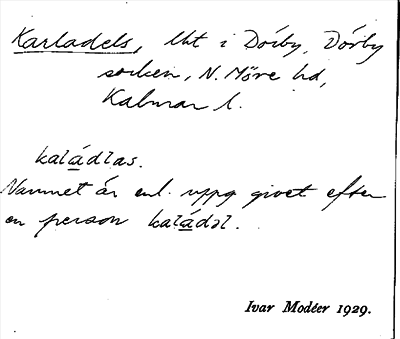 Karladels, lht i Dörby, Dörby
socken, N. Möre hd,
Kalmar l.
kaladlas.
Namnet är enl. uppg givet efter
en person kaladəl.
Ivar Modéer 1929.